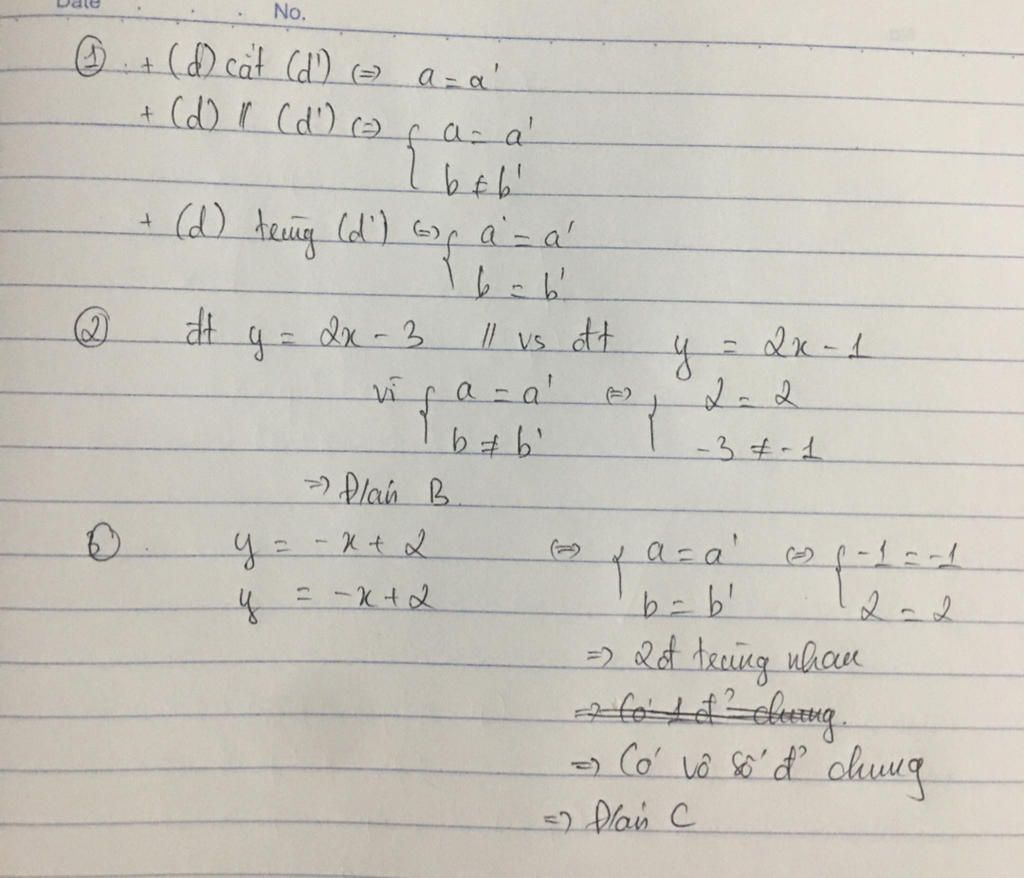 Date No.
① + (d) cắt (d') <=> a = a'
+ (d) // (d') <=> { a = a'
b ≠ b'
+ (d) trùng (d') <=> { a = a'
b = b'
② đt y = 2x - 3 // vs đt y = 2x - 1
vì { a = a' <=> { 2 = 2
b ≠ b' -3 ≠ -1
=> Đ/án B
y = -x + 2 <=> { a = a' <=> { -1 = -1
y = -x + 2 b = b' 2 = 2
=> 2đt trùng nhau
=> Có 1 đ' chung.
=> Có vô số đ' chung
=> Đ/án C